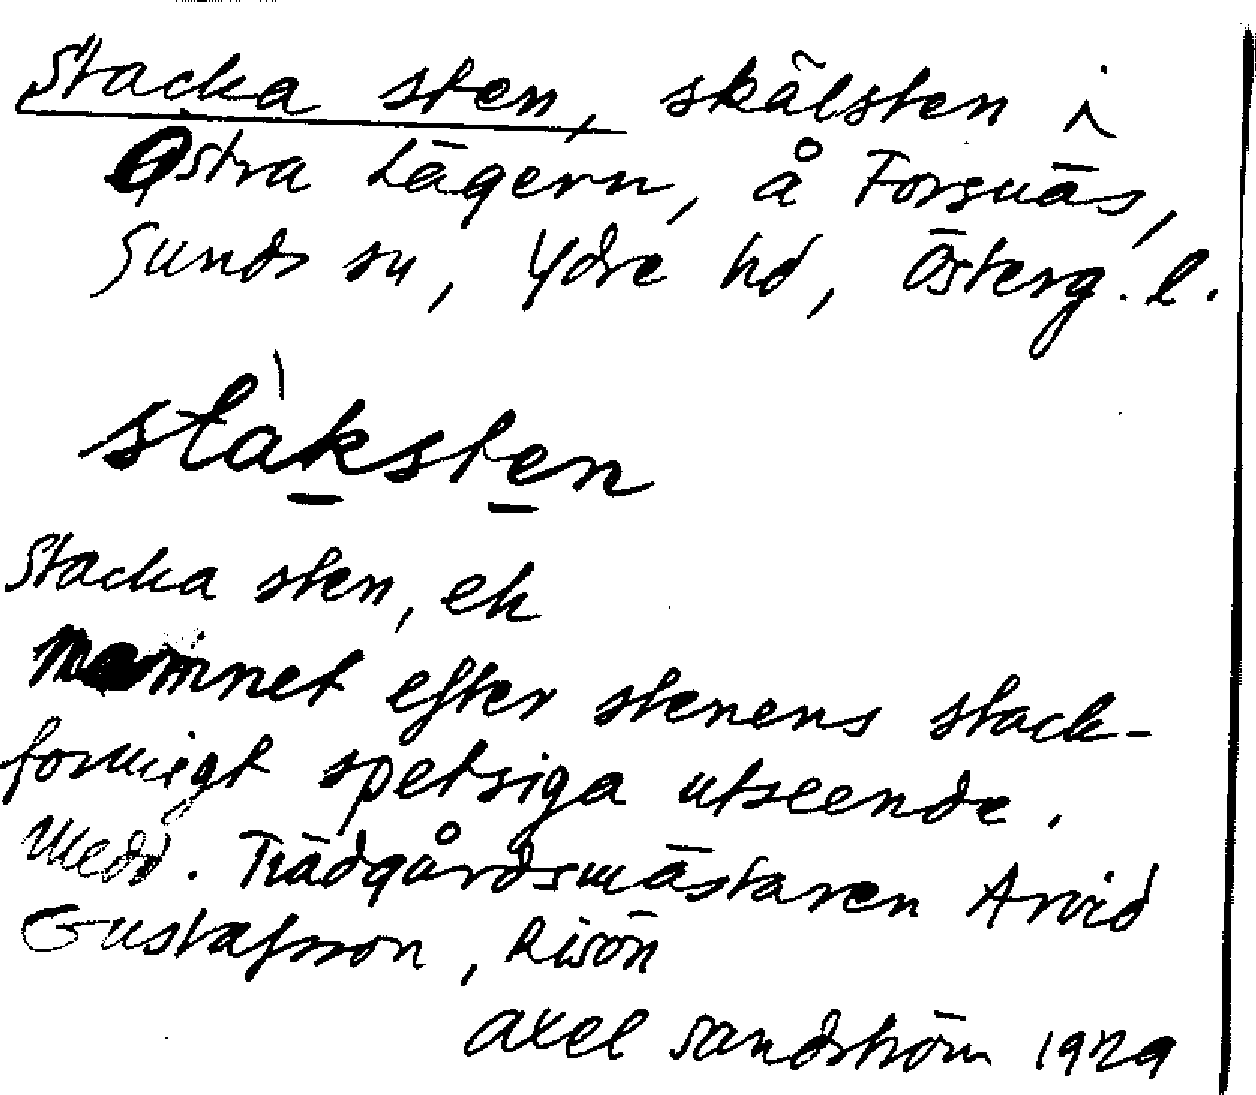 Stacka sten, skälsten i
Östra Lägern, å Forsnäs,
Sunds sn, Ydre hd, Österg. l.
stàksten
Stacka sten, ek
Namnet efter stenens stack-
formigt spetsiga utseende.
Medd. Trädgårdsmästaren Arvid
Gustafsson, Risön
Axel Sandström 1929